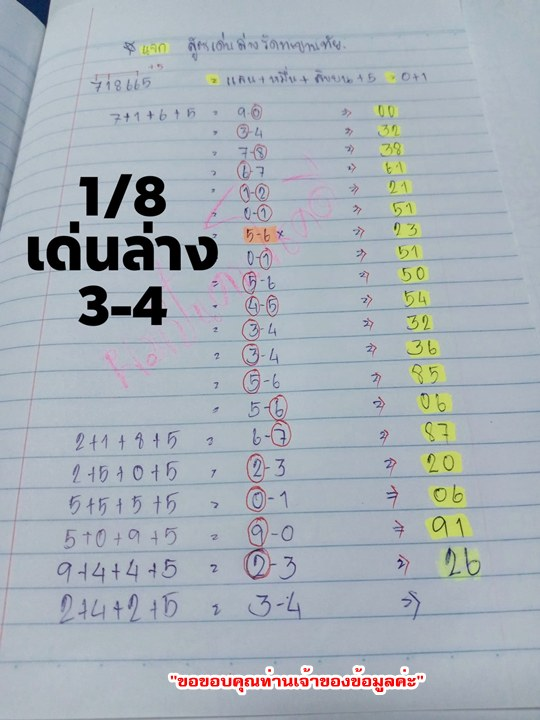 * แจก สูตรเด่นล่าง
+5
718665 = แสน+หมื่น+สิบบน+5 = 0+1
7+1+6+5 = 9-0 => 00
3-4 => 32
7-8 => 38
6-7 => 61
1-2 => 21
0-1 => 51
5-6 x => 23
0-1 => 51
= 5-6 => 50
= 4-5 => 54
= 3-4 => 32
= 3-4 => 36
= 5-6 => 85
= 5-6 => 06
2+1+8+5 = 6-7 => 87
2+5+0+5 = 2-3 => 20
5+5+5+5 = 0-1 => 06
5+0+9+5 = 9-0 => 91
9+4+4+5 = 2-3 => 26
2+4+2+5 = 3-4 =>
1/8
เด่นล่าง
3-4
"ขอขอบคุณท่านเจ้าของข้อมูลค่ะ"